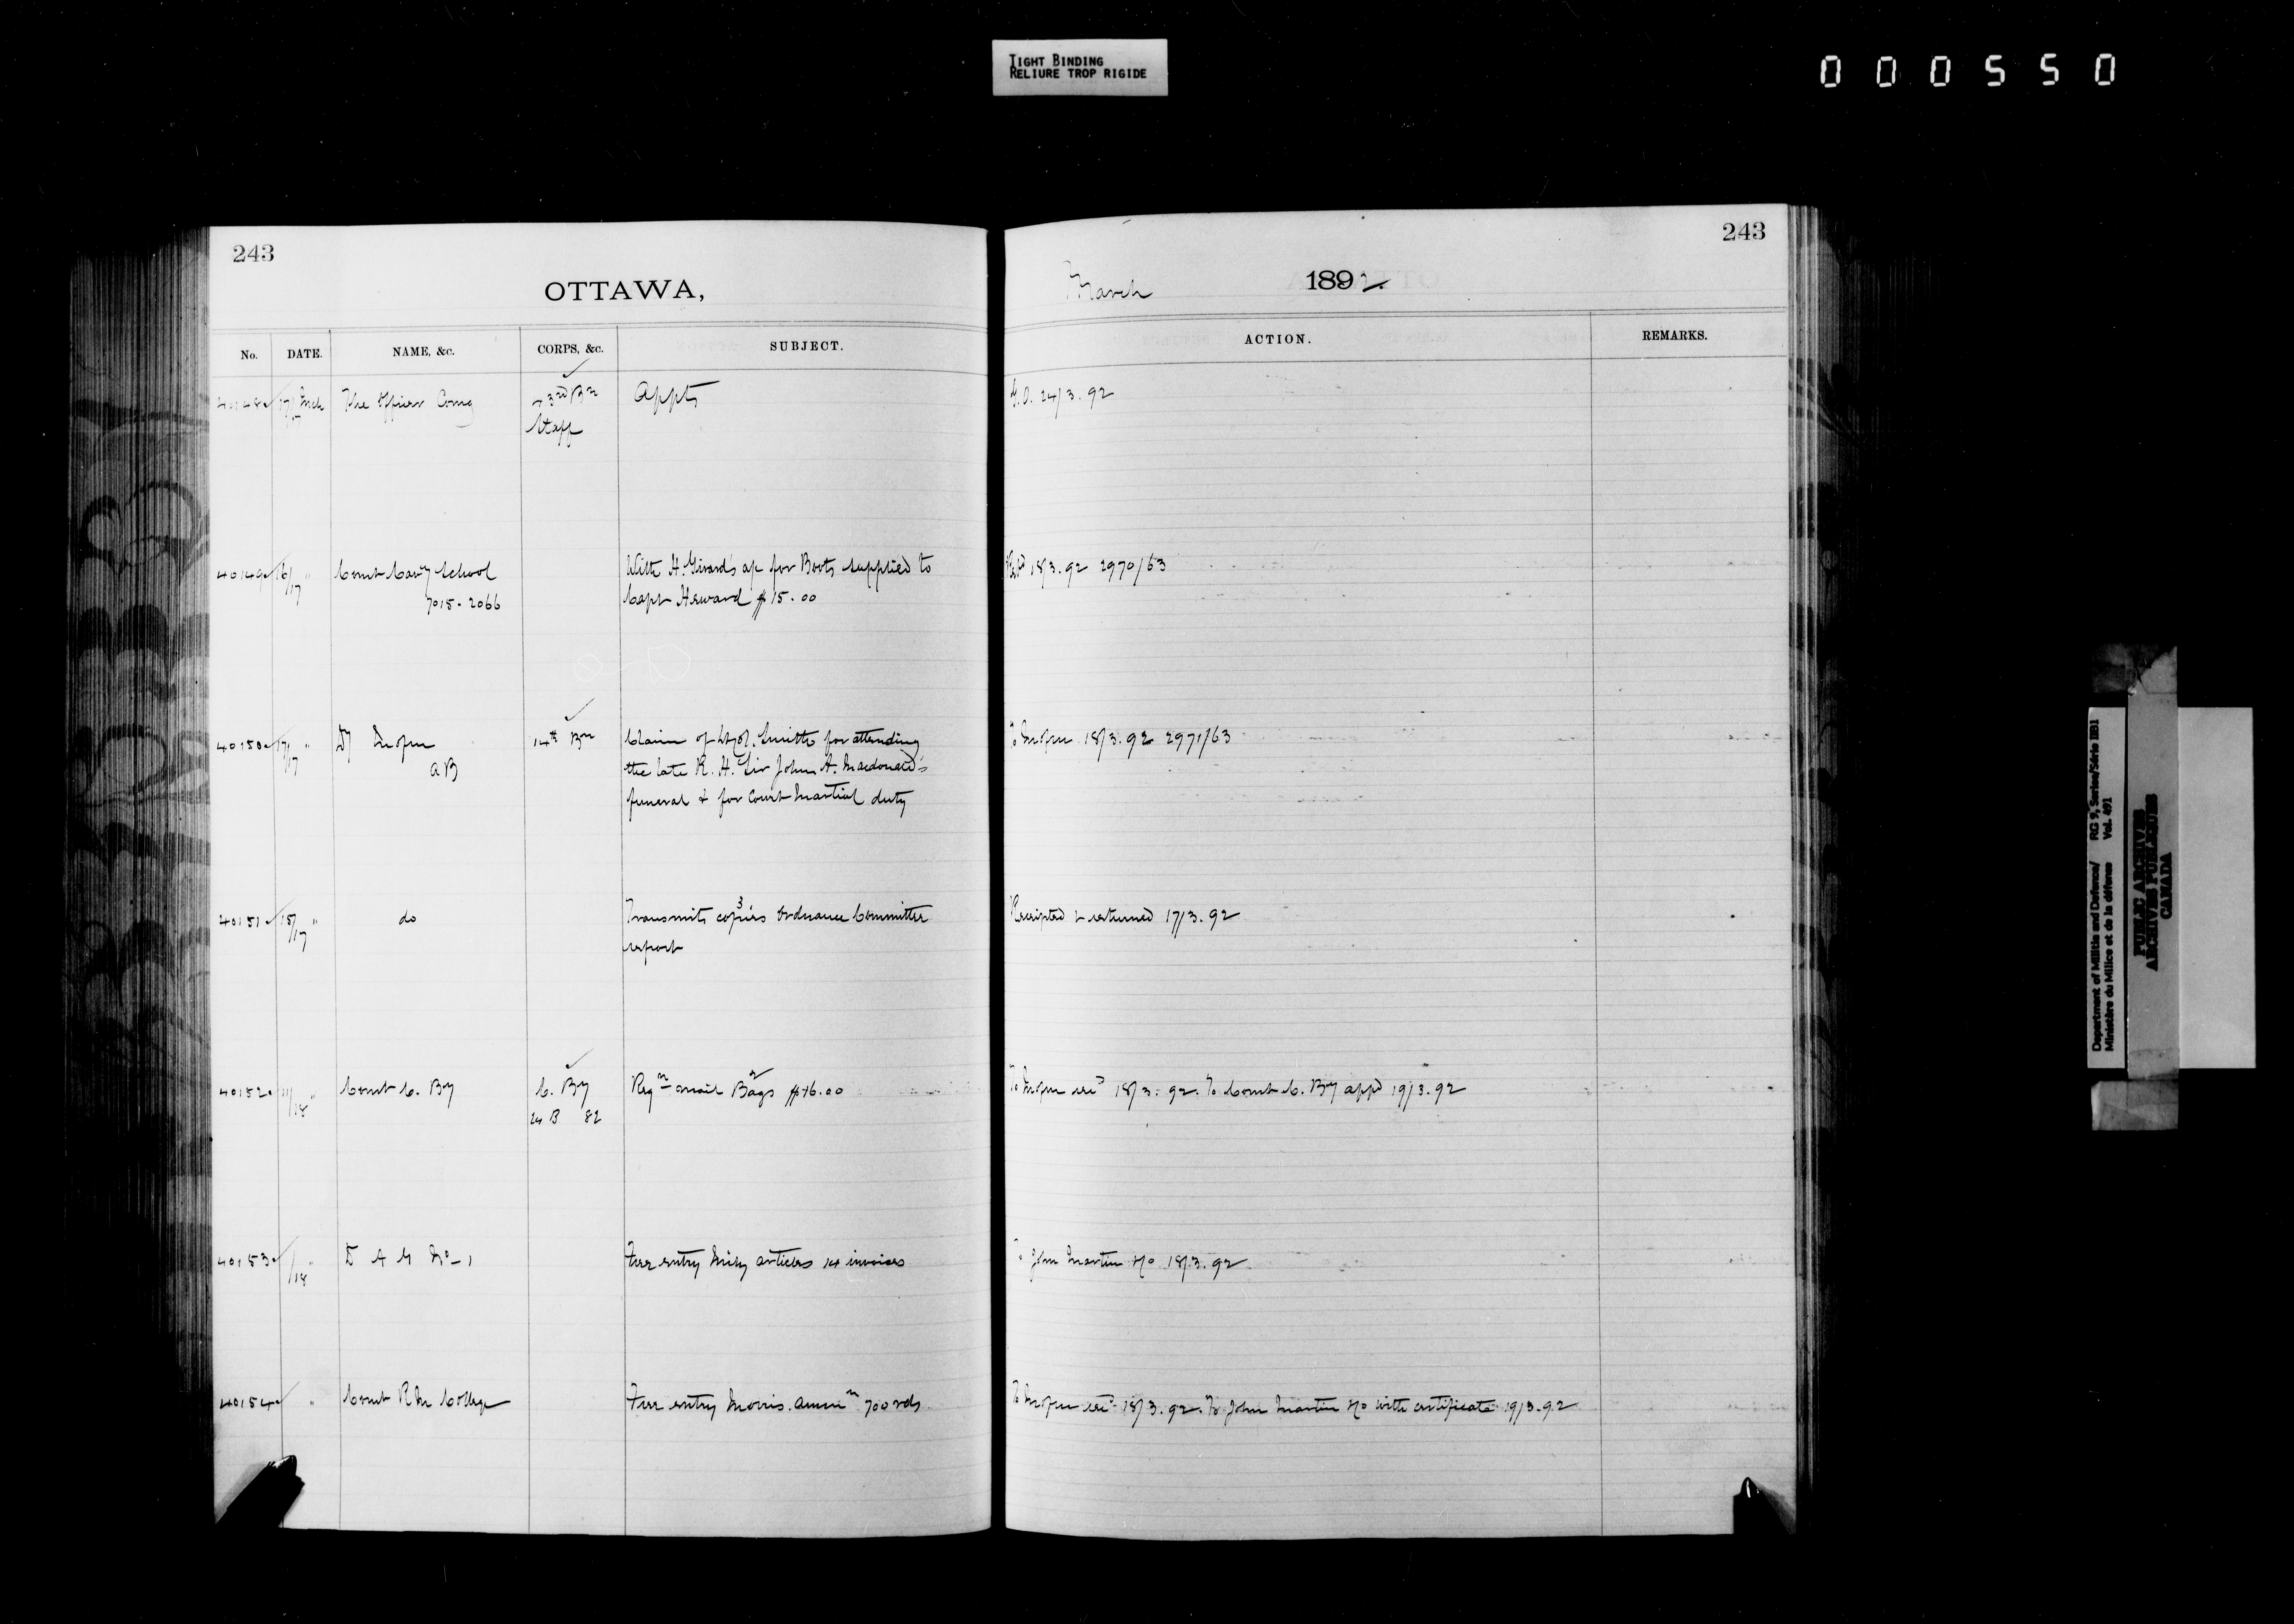 TIGHT BINDING
RELIURE TROP RIGIDE
000550
243
OTTAWA,
No. DATE. NAME, &c. CORPS, &c. SUBJECT.
40148 17/17 Mch The Officer Comg 43rd Bn Appts
Staff
40149 16/17 " Comt Cavy School With H. Girard's ap for Boots supplied to
7015 . 2066 Capt Heward $15.00
40150 17/17 " 14th Bn Claim of Lt Col. Smith for attending
AB the late R. H. Sir John A. Macdonald's
funeral & for Court Martial duty
40151 15/17 " do Transmits 3 copies Ordnance Committee
report
40152 11/18 " Comt C. By C. By Reqn mail Bags 2 $16.00
24 B 82
40153 /18 " D A G No 1 Free entry Mily articles 14 invoices
40154 " Comt R M College Free entry Morris. Ammn 700 rds
243
March 1892.
ACTION. REMARKS.
G.O. 24/3.92
18/3.92 2970/63
To 18/3.92 2971/63
Receipted & returned 17/3.92
To 18/3.92. To Comt C. By appd 19/3.92
To John Martin &Co 18/3.92
To 18/3.92. To John Martin &Co with certificate 19/3.92
Department of Militia and Defence/ RG 9, Series/Série IIB1
Ministère du Milice et de la défense Vol. 491
PUBLIC ARCHIVES
ARCHIVES PUBLIQUES
CANADA